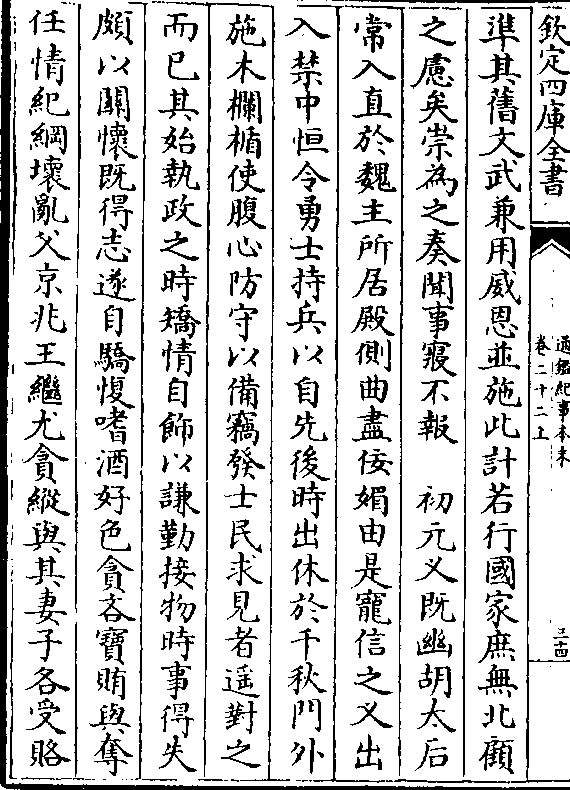 欽定四庫全書
通鑑紀事本末
卷二十二上
三十四
準其舊文武兼用威恩並施此計若行國家庶無北顧
之慮矣崇為之奏聞事寢不報　初元义既幽胡太后
常入直於魏主所居殿側曲盡佞媚由是寵信之义出
入禁中恒令勇士持兵以自先後時出休於千秋門外
施木欄楯使腹心防守以備竊發士民求見者遥對之
而已其始執政之時矯情自飾以謙勤接物時事得失
頗以關懷既得志遂自驕愎嗜酒好色貪吝寶賄與奪
任情紀綱壞亂父京兆王繼尤貪縱與其妻子各受賂